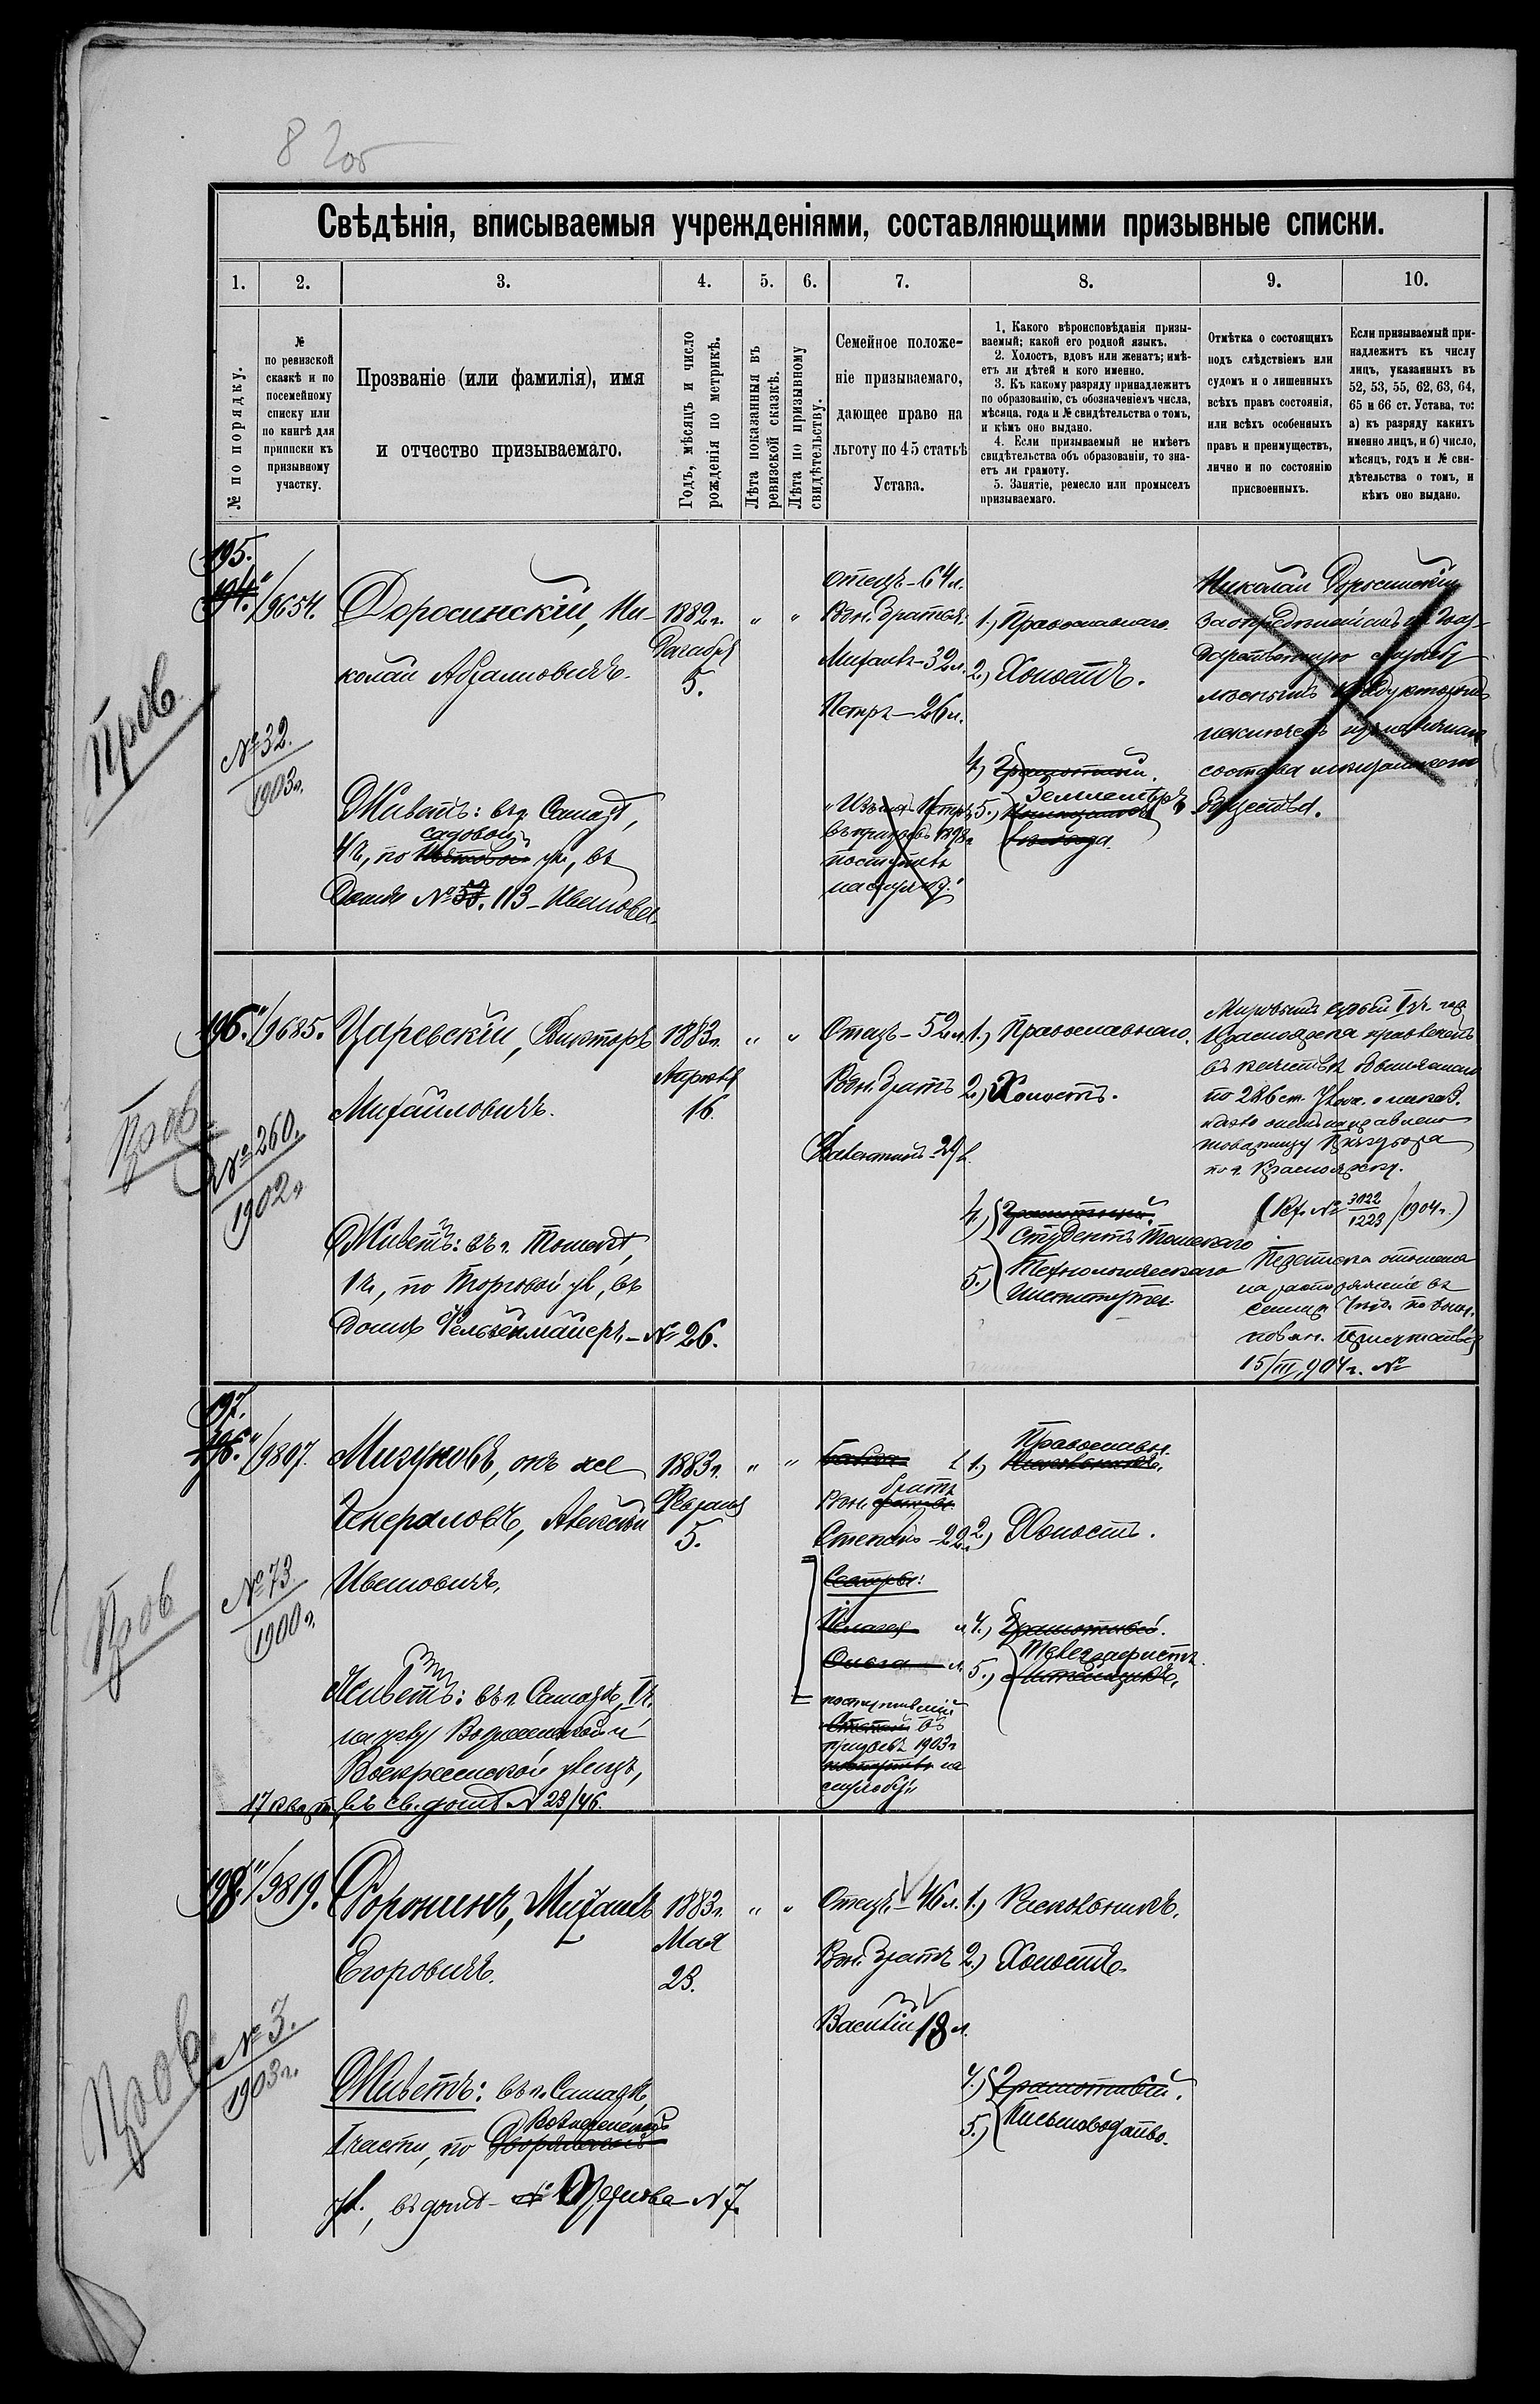 8 2об
Свѣдѣнія, вписываемыя учрежденіями, составляющими призывные списки.
1. 2. 3. 4. 5. 6. 7. 8. 9. 10.
№ по порядку.
№
по ревизской
сказкѣ и по
посемейному
списку или
по книгѣ для
приписки къ
призывному
участку.
Прозваніе (или фамилія), имя
и отчество призываемаго.
Годъ, мѣсяцъ и число
рожденія по метрикѣ.
Лѣта показанныя въ
ревизской сказкѣ.
Лѣта по призывному
свидѣтельству.
Семейное положе-
ніе призываемаго,
дающее право на
льготу по 45 статьѣ
Устава.
1. Какого вѣроисповѣданія призы-
ваемый; какой его родной языкъ.
2. Холостъ, вдовъ или женатъ; имѣ-
етъ ли дѣтей и кого именно.
3. Къ какому разряду принадлежитъ
по образованію, съ обозначеніемъ числа,
мѣсяца, года и № свидѣтельства о томъ,
и кѣмъ оно выдано.
4. Если призываемый не имѣетъ
свидѣтельства объ образованіи, то зна-
етъ ли грамоту.
5. Занятіе, ремесло или промыселъ
призываемаго.
Отмѣтка о состоящихъ
подъ слѣдствіемъ или
судомъ и о лишенныхъ
всѣхъ правъ состоянія,
или всѣхъ особенныхъ
правъ и преимуществъ,
лично и по состоянію
присвоенныхъ.
Если призываемый при-
надлежитъ къ числу
лицъ, указанныхъ въ
52, 53, 55, 62, 63, 64,
65 и 66 ст. Устава, то:
а) къ разряду какихъ
именно лицъ, и б) число,
мѣсяцъ, годъ и № сви-
дѣтельства о томъ, и
кѣмъ оно выдано.
195.
194.
"/9654.
Пров
№ 32.
1903 г.
Доросинскій, Ни-
колай Абрамовичъ.
Живетъ: въ г. Самарѣ,
4 ч., по садовой ул., въ
домѣ № 113 - Иванова.
1882 г.
Декабря
5.
" "
Отецъ - 64 л.
Родн. братья:
Михаилъ - 32 л.
Петръ - 26 л.
Петръ
въ призывъ 1898 г.
поступилъ
на службу."
1.) Православнаго.
2.) Холостъ.
4.) Грамотный.
5.) Землемѣръ
Николай Доросинскій
за опредѣленіемъ на госу-
дарственную службу
исключенъ изъ
состава мѣщанскаго
общества.
196. "/9685.
Пров.
№ 260.
1902 г.
Царевскій, Викторъ
Михайловичъ.
Живетъ: въ г. Томскѣ,
1 ч., по Торговой ул., въ
домѣ Фельзенмайеръ - № 26.
1883 г.
Апрѣля
16.
" "
Отецъ - 52 л.
Родн. братъ
1.) Православнаго.
2.) Холостъ.
4.) Грамотный.
Студентъ Томскаго
5.) Технологическаго
Института.
Мировымъ судьей 1 уч. гор.
Красноярска привлеченъ
въ качествѣ обвиняемаго
по 286 ст. Улож. о наказ.
дѣло направлено
товарищу Прокурора
по г. Красноярску.
(Вх. № 3022/1223 /1904 г.)
Переписка отослана
на распоряженіе въ
Самар. Уѣзд. по воин.
повин. Присутствіе
15/III 904 г. №
197.
196. "/9807.
Пров
№ 73.
1900 г.
Мизуновъ, онъ же
Генераловъ, Алексѣй
Ивановичъ.
Живетъ: въ г. Самарѣ, 1 ч.
на углу Вознесенской и
Воскресенской улицъ,
17 кварт., въ св. домѣ № 23/46.
1883 г.
Февраля
5.
" "
Родн. братъ
Степанъ - 22 л.
Сестры:
Пелагея л.
Ольга л.
поступившій
въ
призывъ 1903 г.
на
службу."
1.) Православн.
2.) Холостъ.
4.) Грамотный.
Телеграфистъ.
5.)
198. "/9819.
Пров
№ 3.
1903 г.
Форонинъ, Михаилъ
Егоровичъ.
Живетъ: въ г. Самарѣ,
1 части, по Вознесенской
ул., въ домѣ - № 7.
1883 г.
Мая
23.
" "
Отецъ - 46 л.
Родн. братъ
Василій 18 л.
1.) Раскольникъ.
2.) Холостъ.
4.) Грамотный.
5.) Письмоводство.